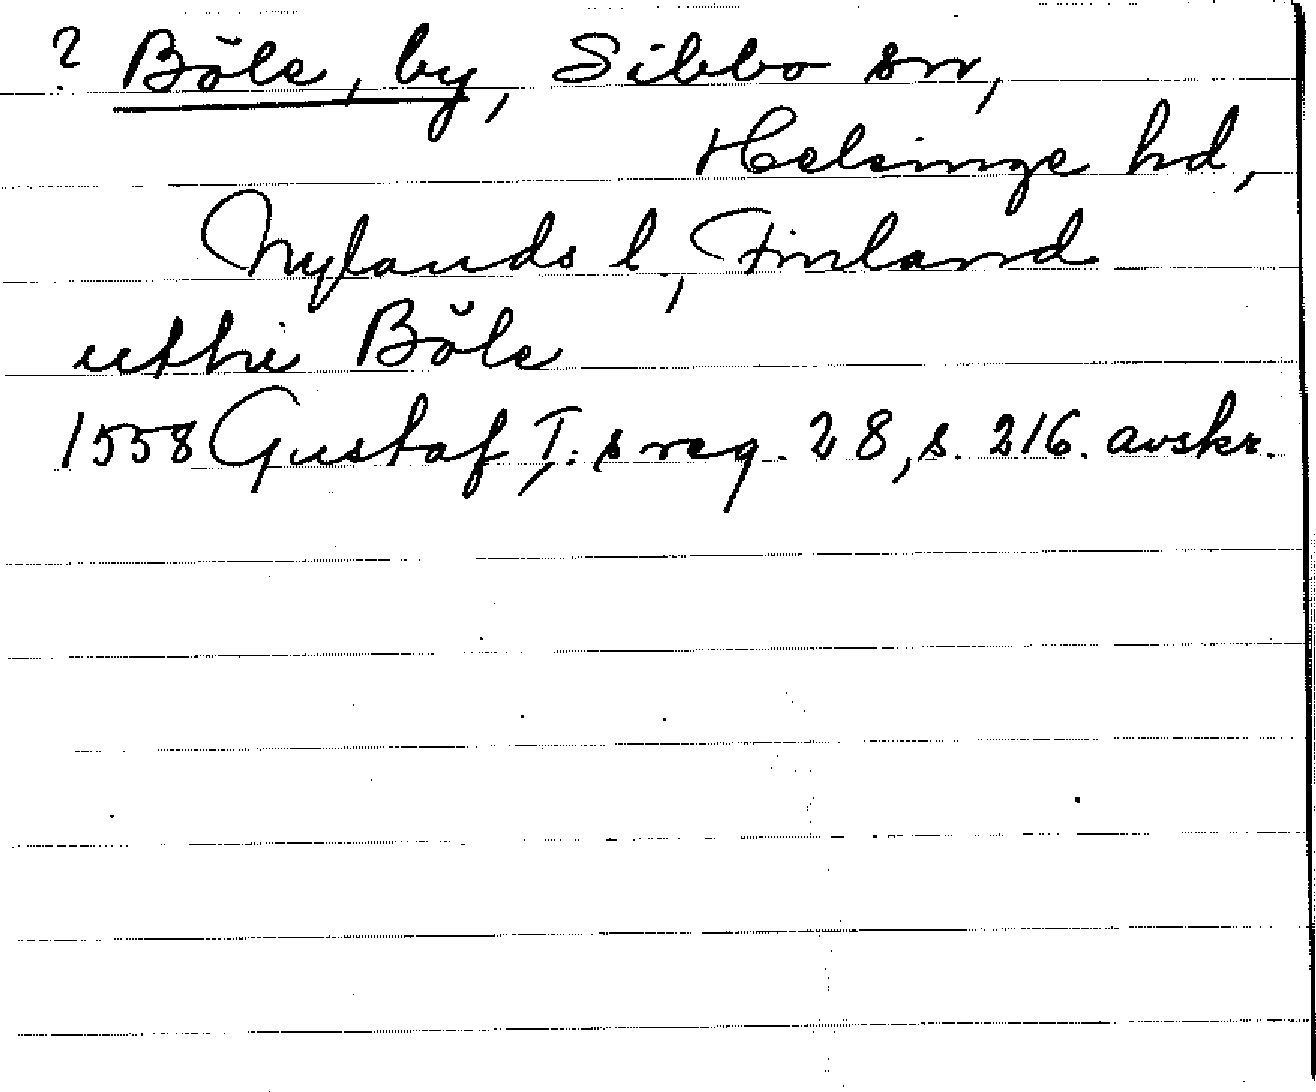 ? Böle, by, Sibbo sn,
Helsinge hd,
Nylands l, Finland
uthi Böle
1558 Gustaf I:s reg. 28, s. 216. avskr.